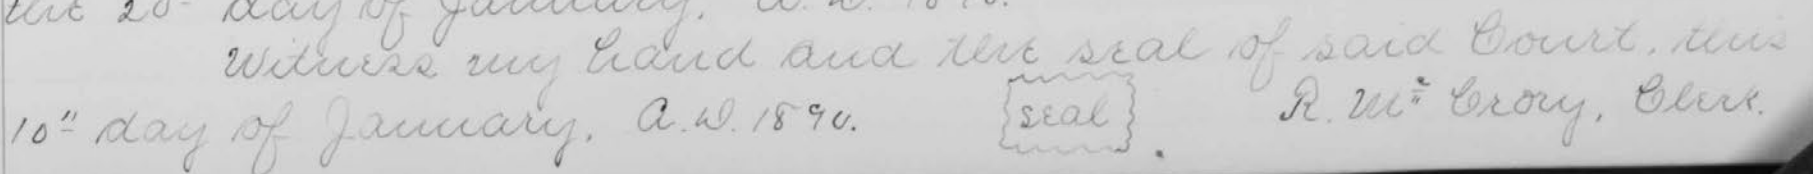 the 20 day of January, A.D. 1890.
Witness my hand and the seal of said Court, this
10" day of January, A.D. 1890. seal R. Mc Crory, Clerk.